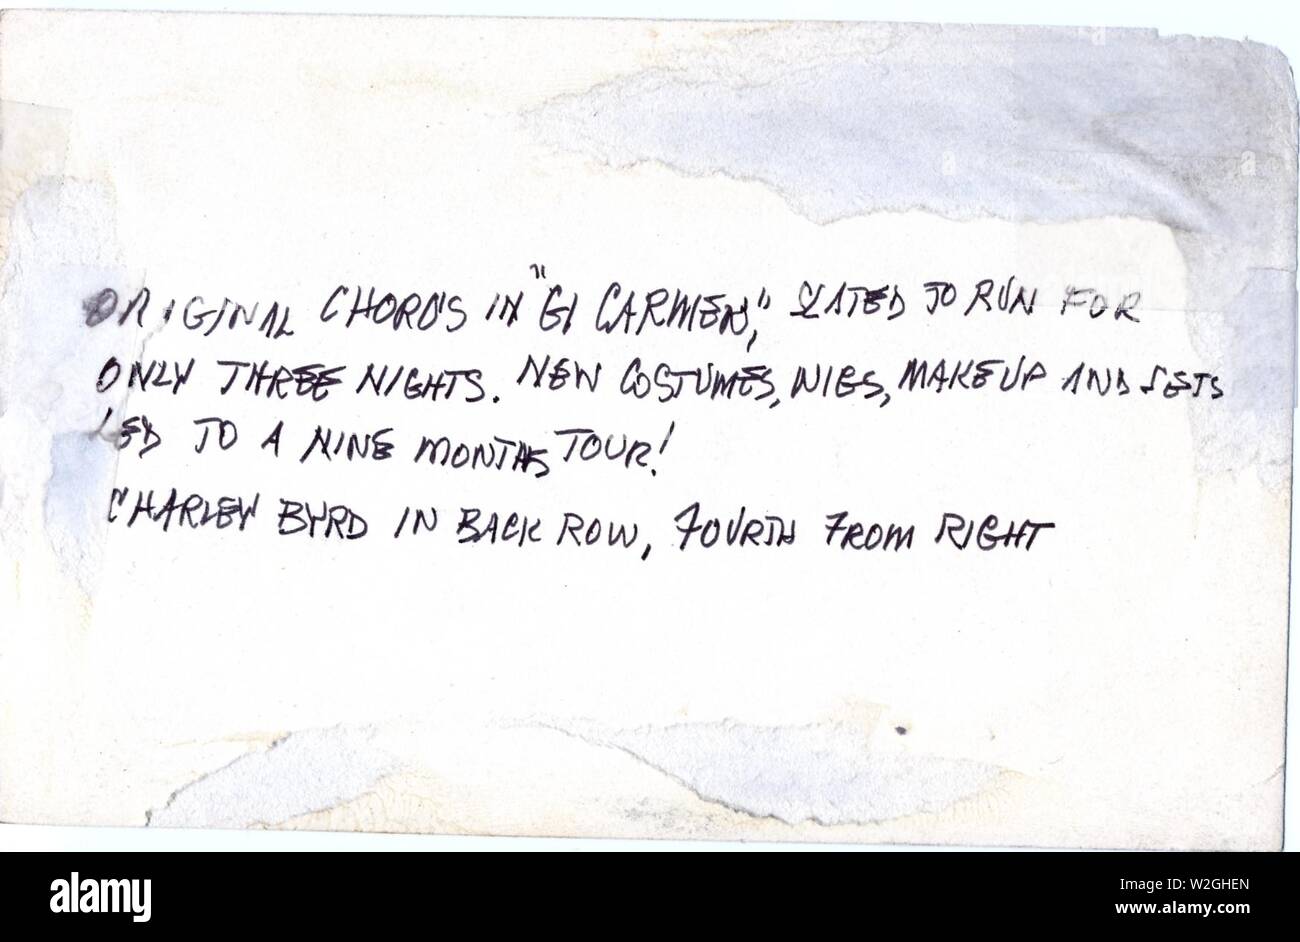 ORIGINAL CHORUS IN "GI CARMEN," SLATED TO RUN FOR
ONLY THREE NIGHTS. NEW COSTUMES, WIGS, MAKEUP AND SETS
LED TO A NINE MONTHS TOUR!
CHARLEY BYRD IN BACK ROW, FOURTH FROM RIGHT
a
a
a
alamy
Image ID: W2GHEN
www.alamy.com